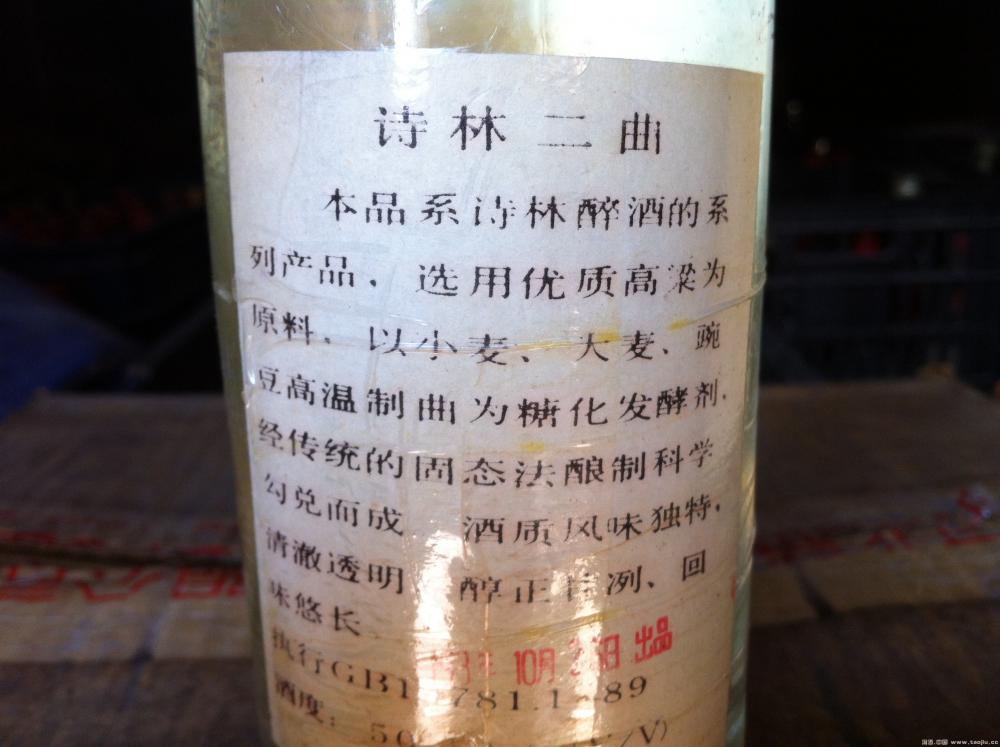 诗林二曲
本品系诗林醉酒的系
列产品，选用优质高粱为
原料，以小麦、大麦、豌
豆高温制曲为糖化发酵剂，
经传统的固态法酿制科学
勾兑而成 酒质风味独特，
清澈透明、醇正甘冽、回
味悠长
年10月23日出品
执行GB1 781.1-89
酒度：50 /V)
淘酒.中国 www.taojiu.cc